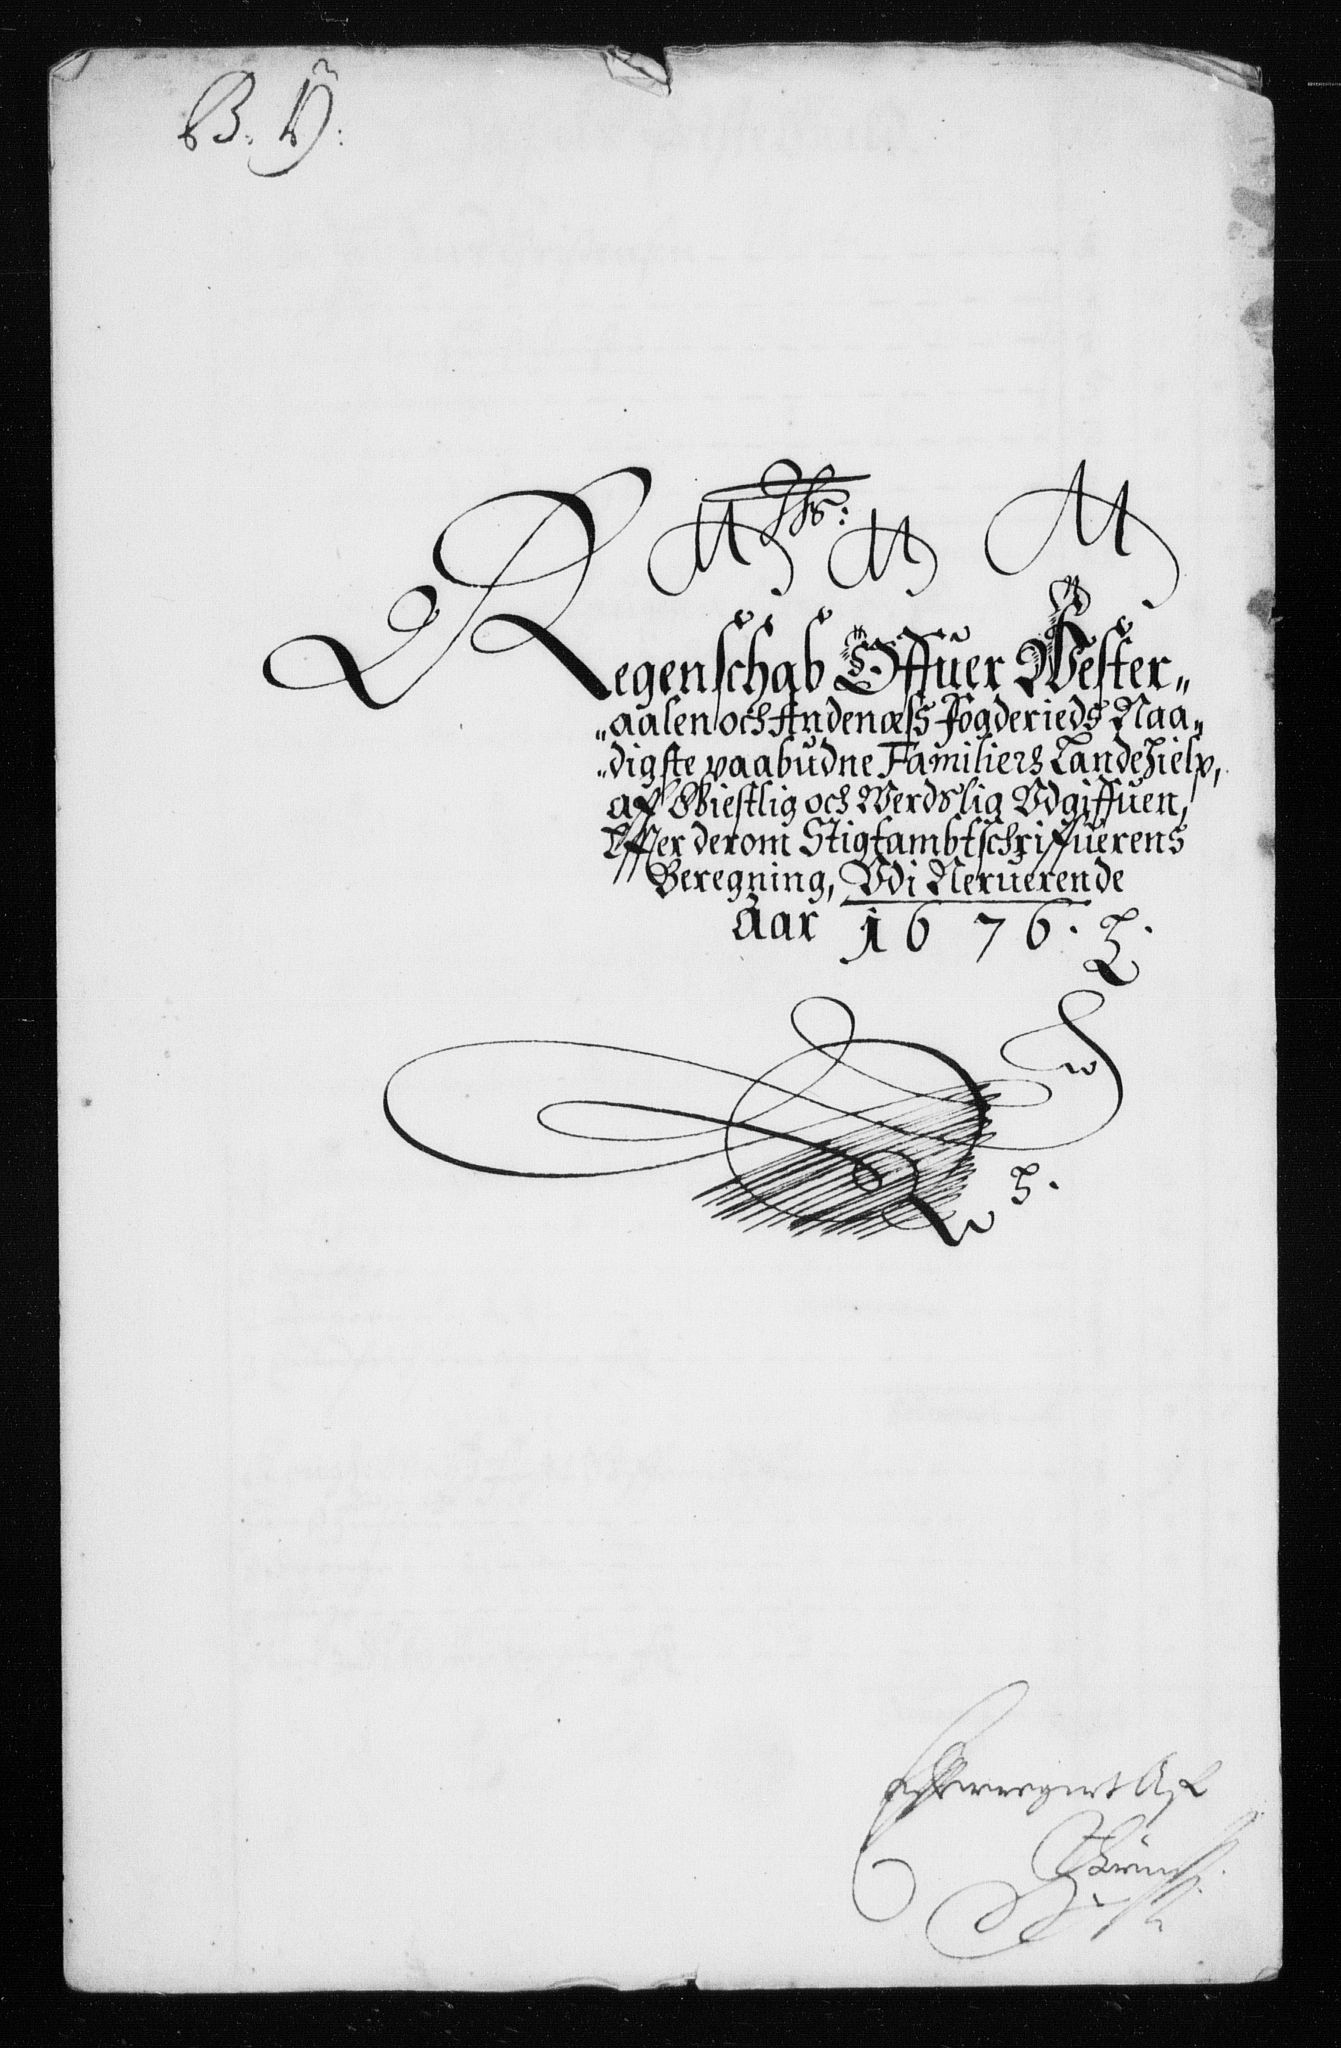 B. D:
Regenschab Offuer Wester„
„aalen och Andenæss Fogderieds Naa„
„digste paabudne Familiers Landehielp,
aff Giestlig och Werdslig Udgiffuen,
Effter derom Stigtambtschriffuerens
Beregning, Udi Neruerende
Aar 1676.